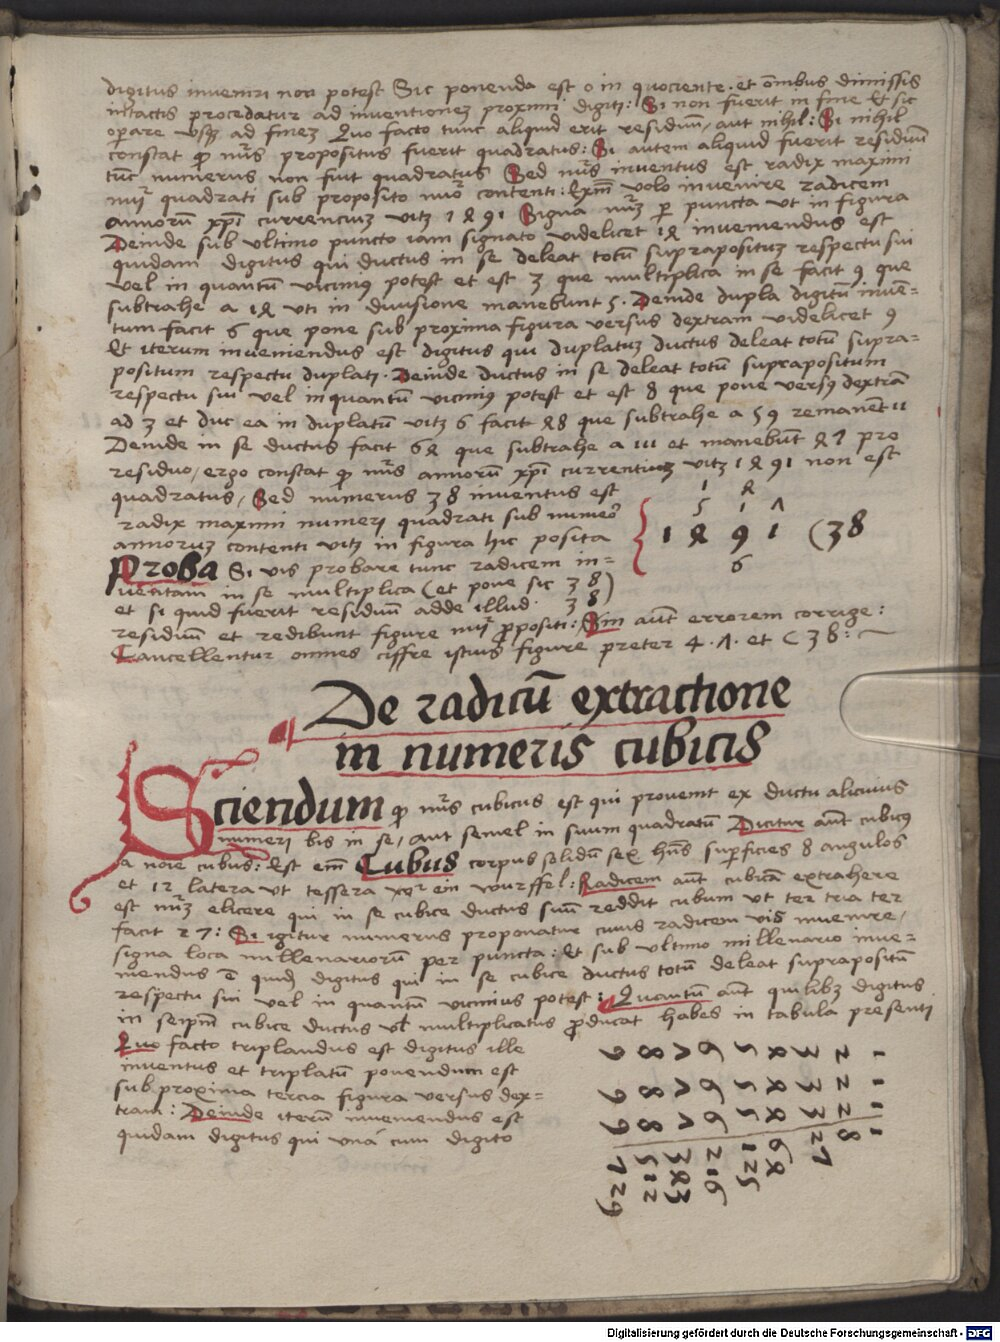 digitus inveniri non potest Sic ponenda est 0 in quociente. et om̄ibus dimissis
intactis procedatur ad inventionez proximi digiti: Si non fuerit in fine Et sic
operare usqz ad finez Quo facto tunc aliquid erit residuū, aut nihil: Si nihil
constat qȝ nūs propositus fuerit quadratus: Si autem aliquid fuerit residuū
tūc numerus non fuit quadratus Sed nūs inventus est radix maximi
nūi quadrati sub proposito nūo contenti: Exm̄ volo invenire radicem
annorū xp̄i currenciuz vitz 1491 Signa nūz per puncta ut in figura
Deinde sub ultimo puncto iam signato videlicet 14 inveniendus est
quidam digitus qui ductus in se deleat totū supraposituz respectu sui
vel in quantū vicinius potest et est 3 que multiplica in se facit 9 que
subtrahe a 14 uti in divisione manebunt 5. Deinde dupla digitū inven=
tum facit 6 que pone sub proxima figura versus dextram videlicet 9
Et iterum inveniendus est digitus qui duplatuz ductus deleat totū supra=
positum respectu duplati. Deinde ductus in se deleat totū suprapositum
respectu sui vel in quantū vicinius potest et est 8 que pone versus dextrā
ad 3 et duc ea in duplatū vitz 6 facit 48 que subtrahe a 59 remanent 11
Deinde in se ductus facit 64 que subtrahe a 111 et manebūt 47 pro
residuo, ergo constat qȝ nūs annorū xp̄i currentiuz vitz 1491 non est
quadratus, Sed numerus 38 inventus est
radix maximi numeri quadrati sub numero
annoruz contenti vitz in figura hic posita
1 4
5 1 7
1 4 9 1 (38
6
Proba Si vis probare tunc radicem in=
ventam in se multiplica (et pone sic 38)
et si quid fuerit residuū adde illud. 38)
residuū et redibunt figure nūi propositi: Sin aūt errorem corrige:
Cancellentur omnes ciffre istius figure preter 4. 7. et (38:
De radicū extractione
in numeris cubicis
Sciendum qȝ nūs cubicus est qui provenit ex ductu alicuius
numeri bis in se, aut semel in suum quadratū Dicitur aūt cubicus
a noīe cubus: Est em̄ Cubus corpus solidū sex hn̄s superficies 8 angulos
et 12 latera ut tessera ein wurffel: Radicem aūt cubicā extrahere
est nūz elicere qui in se cubice ductus suū reddit cubum ut ter tria ter
facit 27: Si igitur numerus proponatur cuius radicem vis invenire,
signa loca millenariorū per puncta: Et sub ultimo millenario inve=
niendus ē quidȝ digitus qui in se cubice ductus totū deleat suprapositū
respectu sui vel in quantū vicinius potest: Quantū aūt quilibȝ digitus
in seipm̄ cubice ductus vl̄ multiplicatus producat habes in tabula presenti
Quo facto triplandus est digitus ille
inventus et triplatū ponendum est
sub proxima tercia figura versus dex=
tram: Deinde iterū inveniendus est
quidam digitus qui unā cum digito
1 1 1 1
2 2 2 8
3 3 3 27
4 4 4 64
5 5 5 125
6 6 6 216
7 7 7 343
8 8 8 512
9 9 9 729
Digitalisierung gefördert durch die Deutsche Forschungsgemeinschaft - DFG